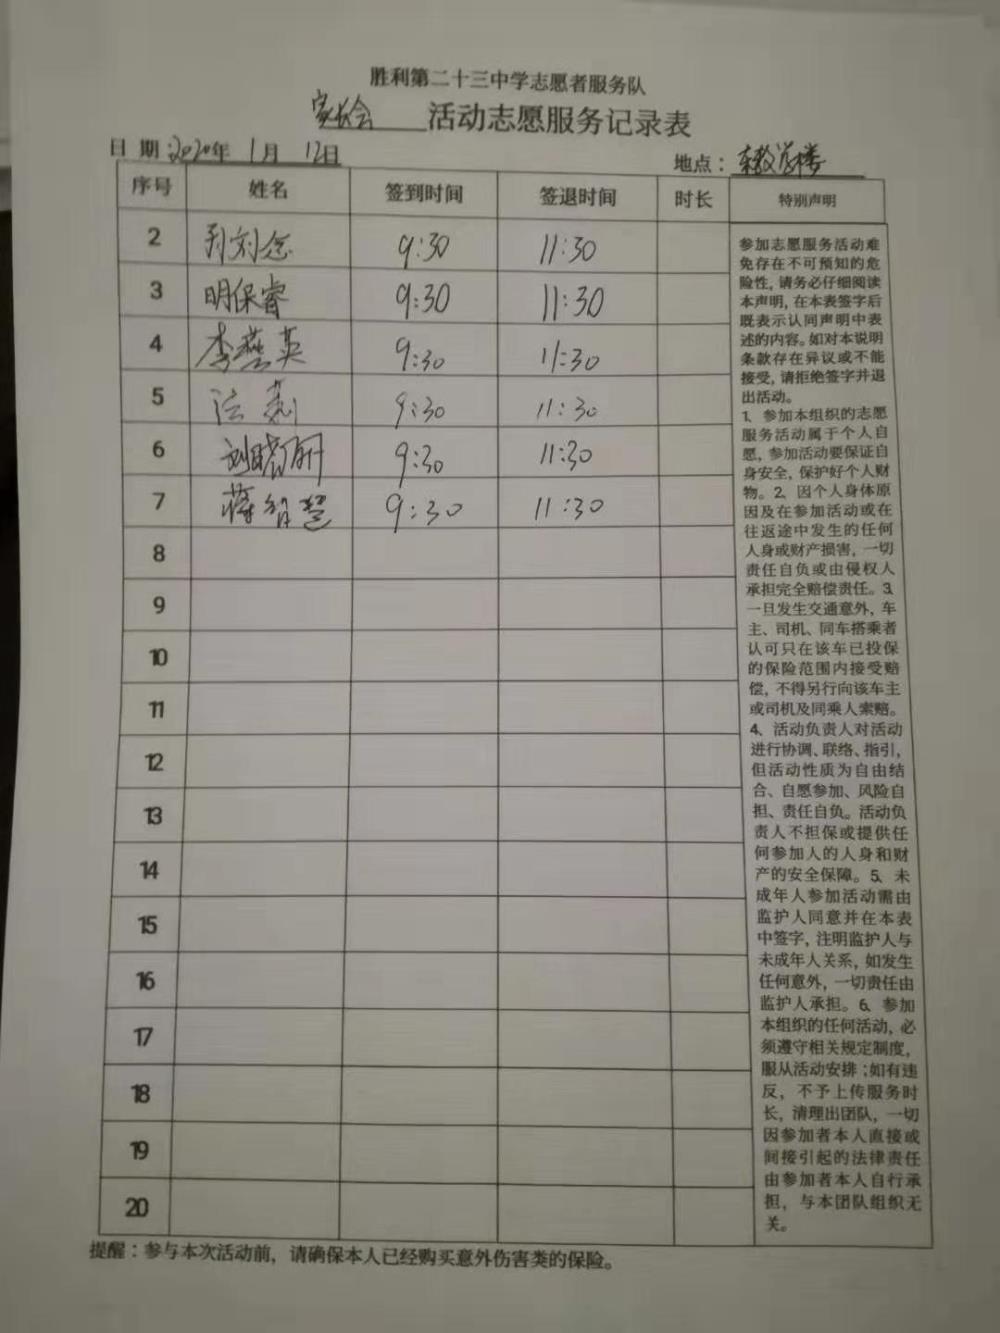 胜利第二十三中学志愿者服务队
家长会 活动志愿服务记录表
日 期：2020年 1月 12日
地点：东教学楼
序号 姓名 签到时间 签退时间 时长 特别声明
2 9:30 11:30
3 明保睿 9:30 11:30
4 李燕英 9:30 11:30
5 9:30 11:30
6 9:30 11:30
7 蒋智慧 9:30 11:30
8
9
10
11
12
13
14
15
16
17
18
19
20
参加志愿服务活动难
免存在不可预知的危
险性，请务必仔细阅读
本声明，在本表签字后
既表示认同声明中表
述的内容。如对本说明
条款存在异议或不能
接受，请拒绝签字并退
出活动。
1、参加本组织的志愿
服务活动属于个人自
愿，参加活动要保证自
身安全，保护好个人财
物。2、因个人身体原
因及在参加活动或在
往返途中发生的任何
人身或财产损害，一切
责任自负或由侵权人
承担完全赔偿责任。3、
一旦发生交通意外，车
主、司机、同车搭乘者
认可只在该车已投保
的保险范围内接受赔
偿，不得另行向该车主
或司机及同乘人索赔。
4、活动负责人对活动
进行协调、联络、指引，
但活动性质为自由结
合、自愿参加、风险自
担、责任自负。活动负
责人不担保或提供任
何参加人的人身和财
产的安全保障。5、未
成年人参加活动需由
监护人同意并在本表
中签字，注明监护人与
未成年人关系，如发生
任何意外，一切责任由
监护人承担。6、参加
本组织的任何活动，必
须遵守相关规定制度，
服从活动安排；如有违
反，不予上传服务时
长，清理出团队，一切
因参加者本人直接或
间接引起的法律责任
由参加者本人自行承
担，与本团队组织无
关。
提醒：参与本次活动前，请确保本人已经购买意外伤害类的保险。